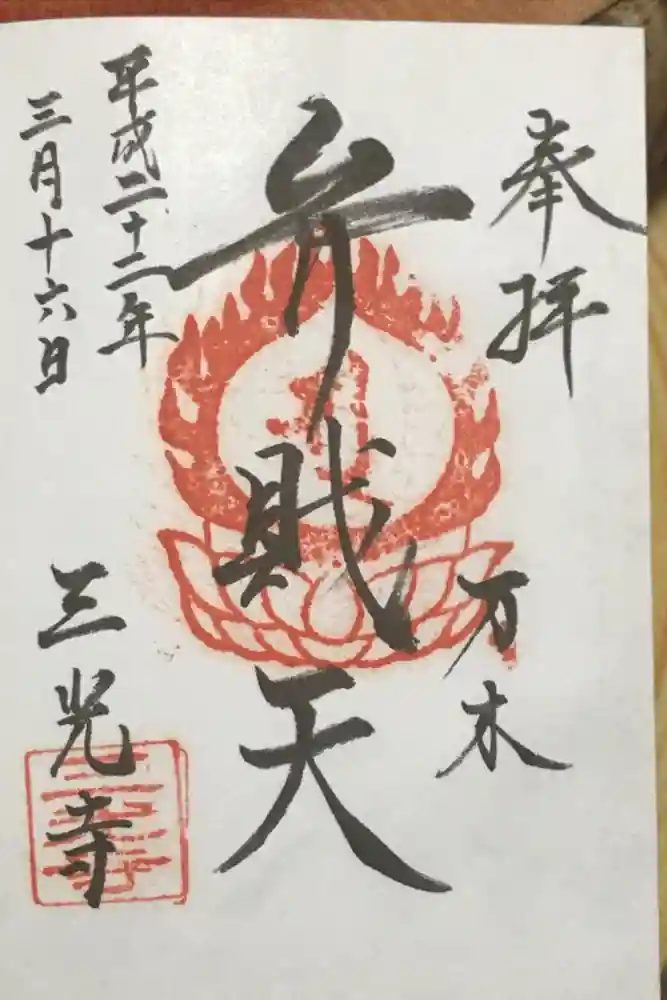 奉拝
万木
弁財天
平成二十二年
三月十六日
三光寺